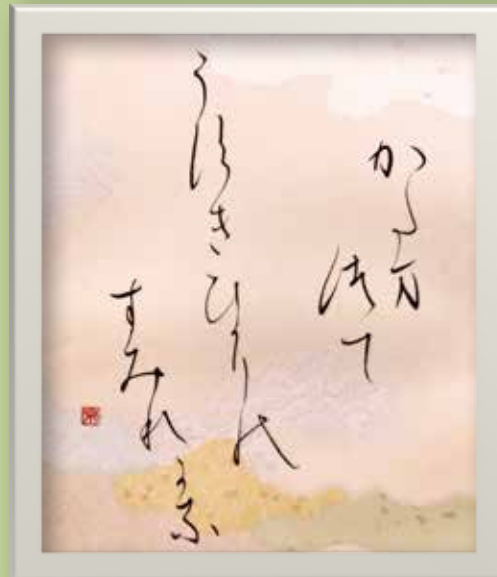 かた万
津て
う須きひかりの
すみれかな